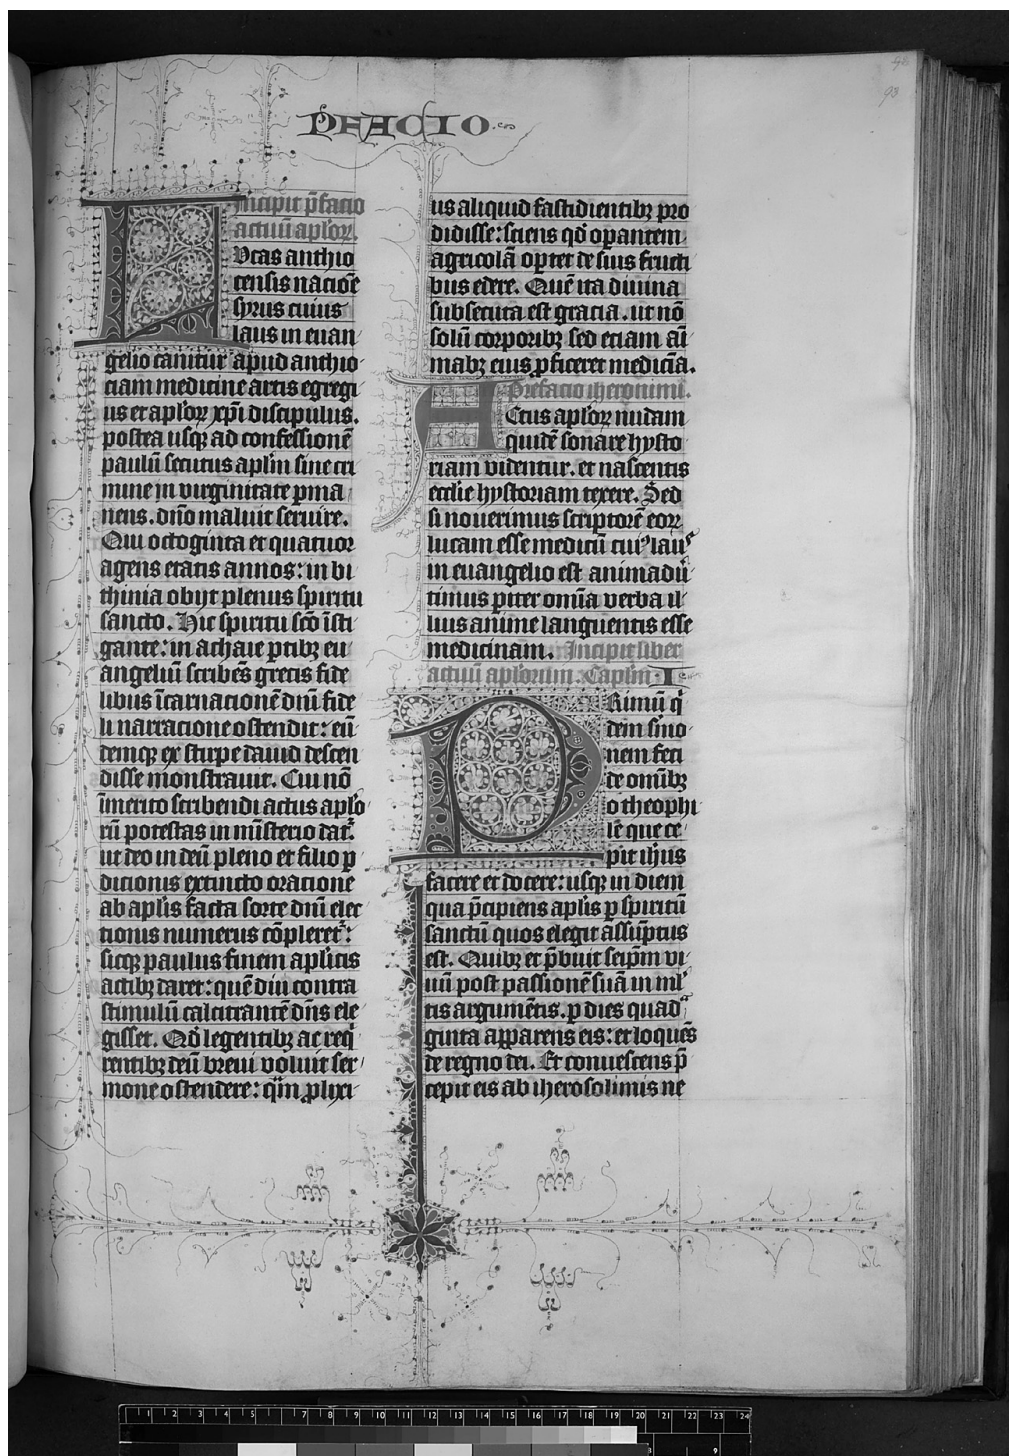 PFACIO
98
98
Incipit p̄facio
actuū aplōꝝ.
LVcas anthio
censis nacioē
syrus cuius
laus in euan
gelio canitur apud anthio
ciam medicine artis egregi
us et aplōꝝ xp̄i discipulus.
postea usqꝫ ad confessionē
paulū secutus aplīm sine cri
mine in virginitate ꝑma
nens. dn̄o maluit seruire.
Qui octoginta et quatuor
agens etatis annos: in bi
thinia obijt plenus spiritu
sancto. Hic spiritu scō īsti
gante: in achaie ꝑtibꝫ eu
angeliū scribēs grecis fide
libus īcarnacionē dn̄i fide
li narracione ostendit: eū
demqꝫ ex stirpe dauid descen
disse monstrauit. Cui nō
īmerito scribendi actus aplō
rū potestas in mīsterio dat᷑.
ut deo in deū pleno et filio ꝑ
dicionis extincto oracione
ab aplīs facta sorte dn̄i elec
tionis numerus cōpleret᷑:
sicqꝫ paulus finem aplīcis
actibꝫ daret: quē diu contra
stimulū calcitrantē dn̄s ele
gisset. Qd̄ legentibꝫ ac req̄
rentibꝫ deū breui voluit ser
mone ostendere: q̄m ꝓlixi
us aliquid fastidientibꝫ pro
didisse: sciens qd̄ oꝑantem
agricolā oꝑtet de suis fructi
bus edere. Quē ita diuina
subsecuta est gracia. ut nō
solū corporibꝫ sed etiam aī
mabꝫ eius ꝓficeret medicīa.
Prefacio iheronimi.
ACtus aplōꝝ nudam
quidē sonare hysto
riam videntur. et nascentis
ecclīe hystoriam texere. Sed
si nouerimus scriptorē eoꝝ
lucam esse medicū cuiꝰ laus
in euangelio est animaduer
timus ꝑiter omīa verba il
lius anime languentis esse
medicinam. Incipit liber
actuū aplōrum. Caplm̄ I
PRimū q̄
dem smo
nem feci
de omībꝫ
o theophi
lē que ce
pit ih̄us
facere et docere: usqꝫ in diem
qua p̄cipiens aplīs ꝑ spiritū
sanctū quos elegit assūptus
est. Quibꝫ et p̄buit seip̄m vi
uū post passionē suā in ml̄
tis argumētis. ꝑ dies quad̾
ginta apparens eis: et loquēs
de regno dei. Et conuescens p̄
cepit eis ab iherosolimis ne
1 2 3 4 5 6 7 8 9 10 11 12 13 14 15 16 17 18 19 20 21 22 23 24
8 9